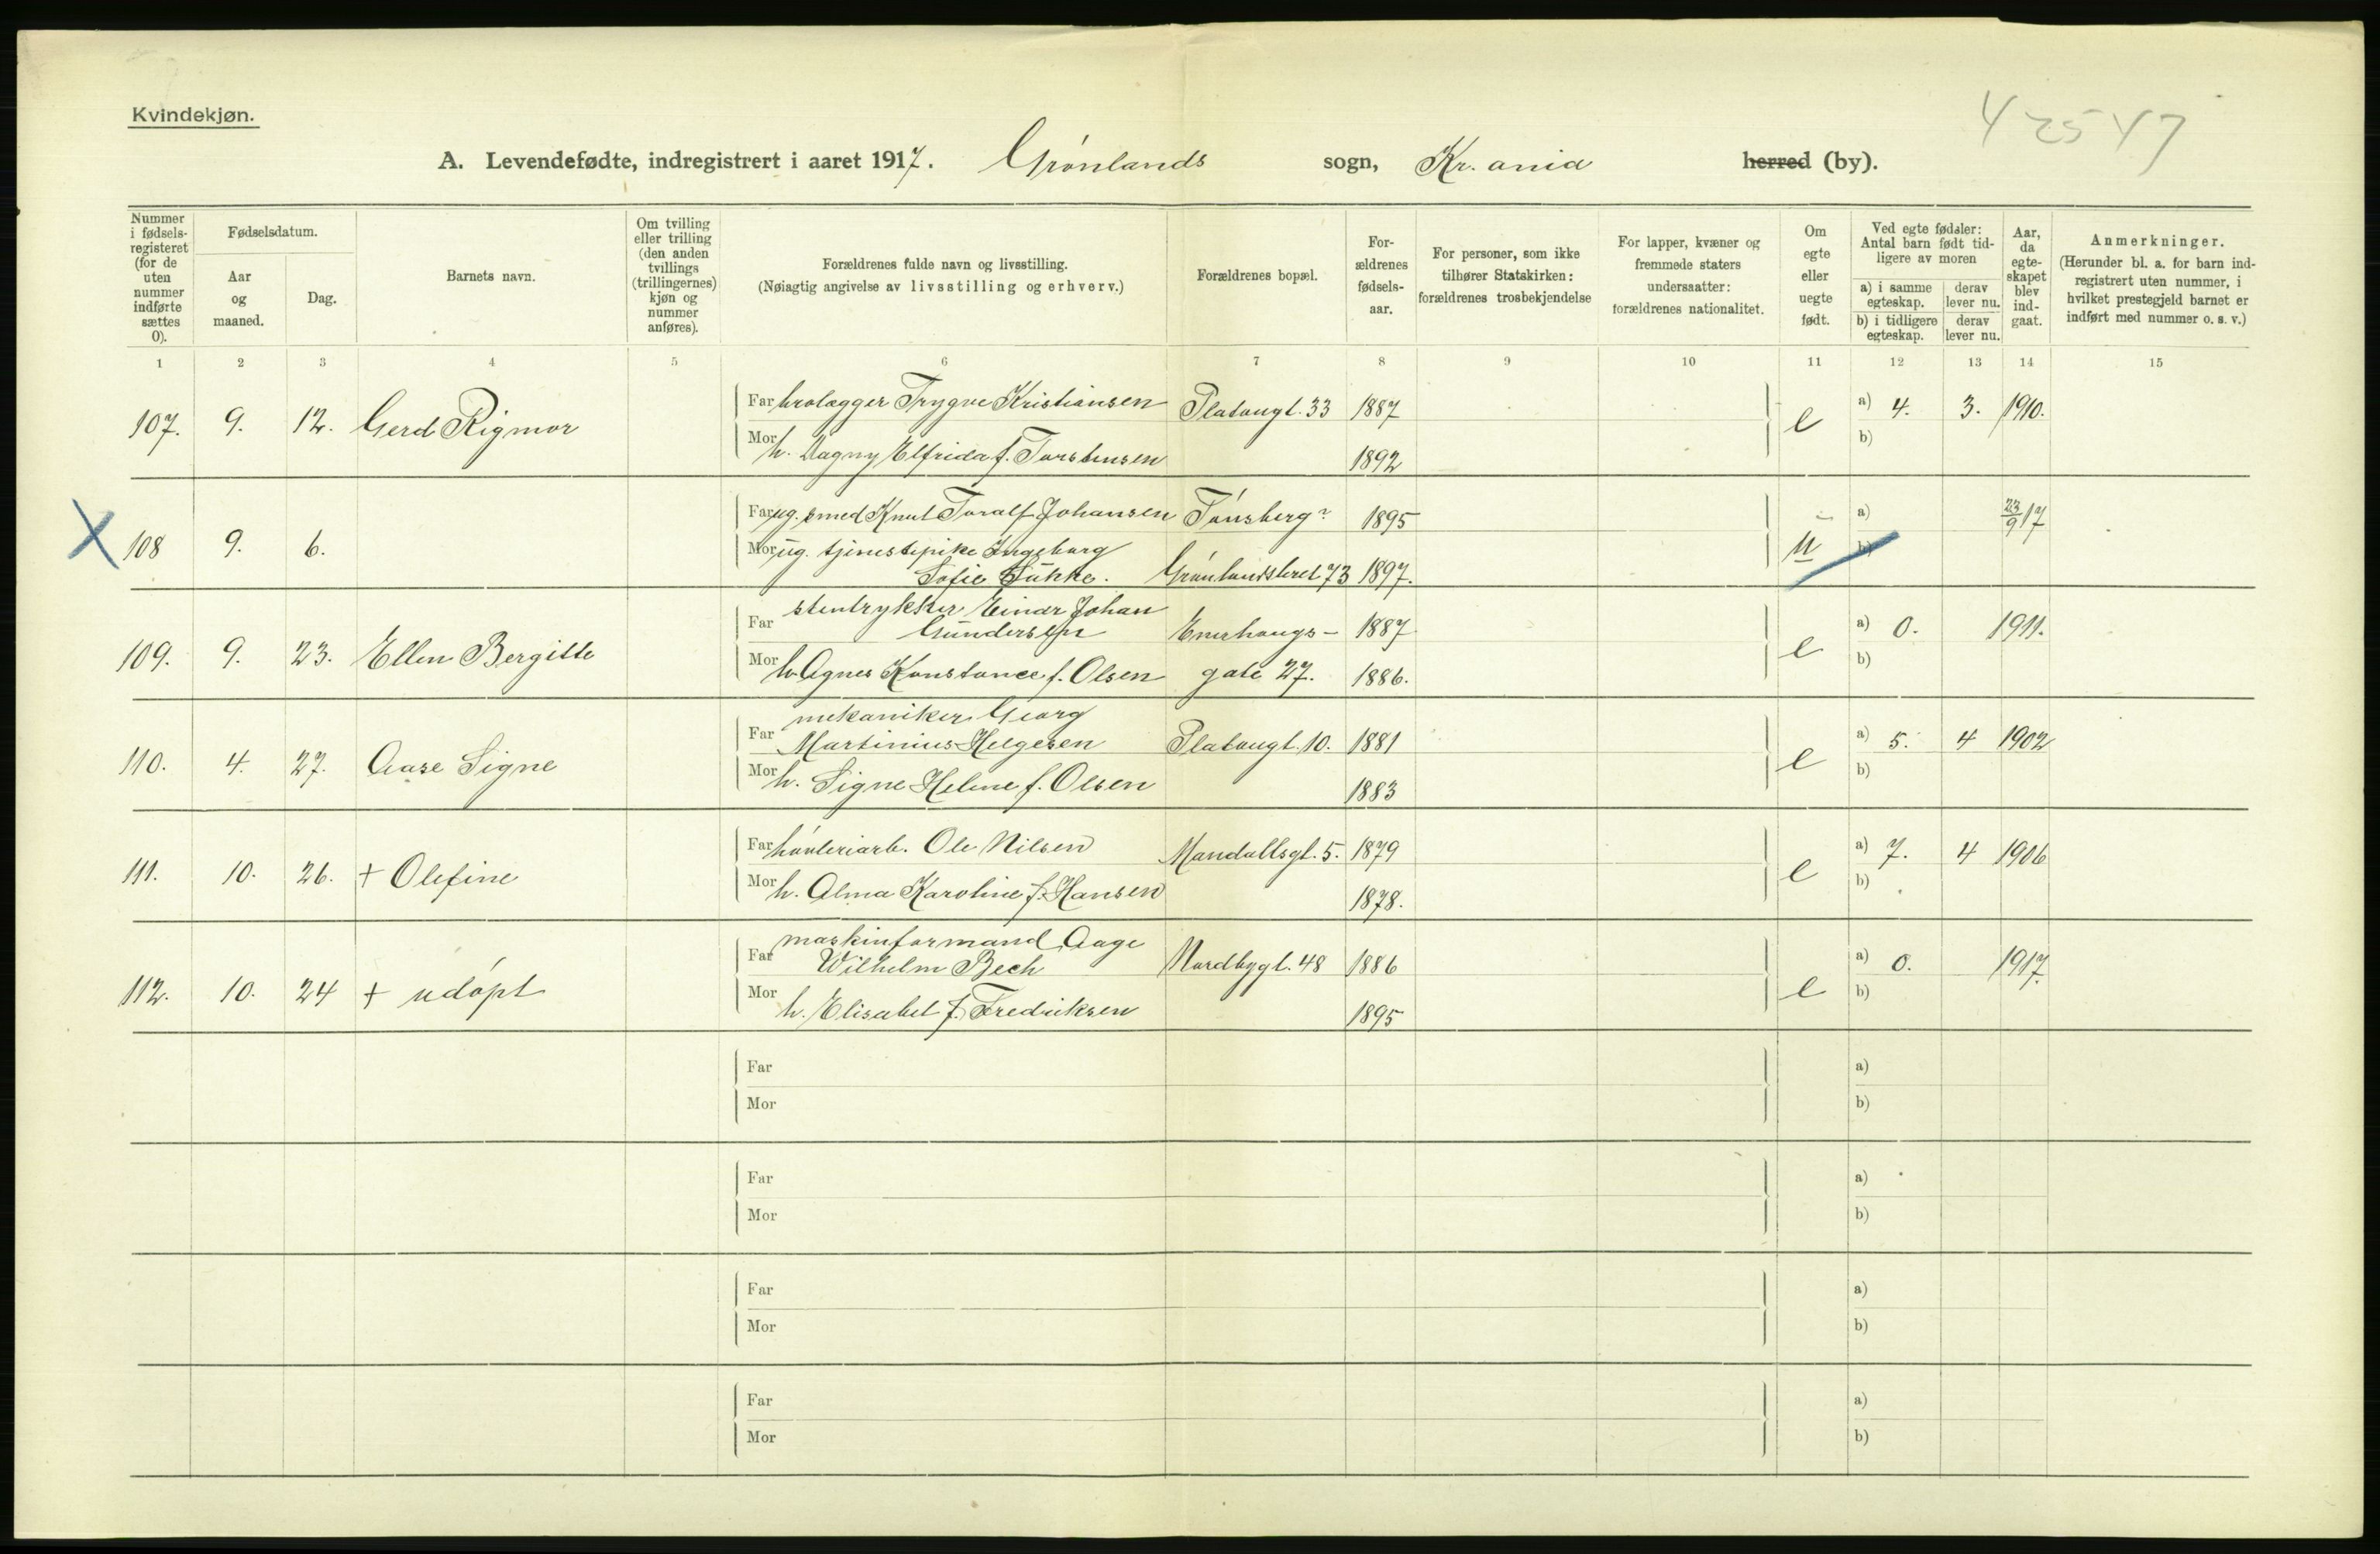 Kvindekjøn.
42547
A. Levendefødte, indregistrert i aaret 1917. Grönlands sogn, Kr.ania herred (by).
Nummer i fødsels-registeret (for de uten nummer indførte sættes 0).
Fødselsdatum.
Aar og maaned.
Dag.
Barnets navn.
Om tvilling eller trilling (den anden tvillings (trillingernes) kjøn og nummer anføres).
Forældrenes fulde navn og livsstilling.
(Nøiagtig angivelse av livsstilling og erhverv.)
Forældrenes bopæl.
For-ældrenes fødsels-aar.
For personer, som ikke tilhører Statskirken: forældrenes trosbekjendelse
For lapper, kvæner og fremmede staters undersaatter: forældrenes nationalitet.
Om egte eller uegte født.
Ved egte fødsler: Antal barn født tid-ligere av moren
a) i samme egteskap. derav lever nu.
b) i tidligere egteskap. derav lever nu.
Aar, da egte-skapet blev ind-gaat.
Anmerkninger.
(Herunder bl. a. for barn ind-registrert uten nummer, i hvilket prestegjeld barnet er indført med nummer o. s. v.)
1 2 3 4 5 6 7 8 9 10 11 12 13 14 15
107. 9. 12. Gerd Rigmor Far brolægger Trygve Kristiansen Platougt. 33 1887 e a) 4. 3. 1910.
Mor h. Dagny Elfrida f. Torstensen 1892 b)
X 108 9. 6. Far ug. smed Knut Toralf Johansen Tönsberg? 1895 u a) 23/9 17
Mor ug. tjenestepike Ingeborg b)
Sofie Grönlandsleret 73 1897.
109. 9. 23. Ellen Bergitte Far stentrykker Einar Johan
Gundersen Enerhaugs- 1887 e a) 0. 1911.
Mor h. Agnes Konstance f. Olsen gate 27. 1886. b)
110. 4. 27. Aase Signe Far mekaniker Georg
Martinius Helgesen Platougt. 10. 1881 e a) 5. 4 1902
Mor h. Signe Helene f. Olsen 1883 b)
111. 10. 26. + Olefine Far hövleriarb. Ole Nilsen Mandallsgt. 5. 1879 e a) 7. 4 1906
Mor h. Alma Karoline f. Hansen 1878. b)
112. 10. 24 + udöpt Far maskinformand Aage
Wilhelm Bech Nordbygt. 48 1886 e a) 0. 1917.
Mor h. Elisabet f. Fredriksen 1895 b)
Far a)
Mor b)
Far a)
Mor b)
Far a)
Mor b)
Far a)
Mor b)